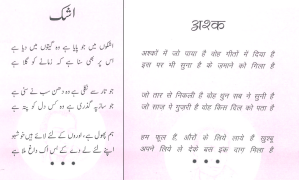 اشک
اشکوں میں جو پایا ہے وہ گیتوں میں دیا ہے
اس پر بھی سنا ہے کہ زمانے کو گلا ہے
جو تار سے نکلی ہے وہ دھن سب نے سنی ہے
جو ساز پہ گذری ہے وہ کس دل کو پتہ ہے
ہم پھول ہے، اوروں کے لئے لائے ہیں خوشبو
اپنے لئے لے دے کے بس اک داغ ملا ہے
अश्क
अश्कों में जो पाया है वोह गीतों में दिया है
इस पर भी सुना है के ज़माने को गिला है
जो तार से निकली है वोह धुन सब ने सुनी है
जो साज़ पे गुज़री है वोह किस दिल को पता है
हम फूल हैं, औरों के लिये लाये हैं खुश्बू
अपने लिये ले देके बस इक दाग मिला है